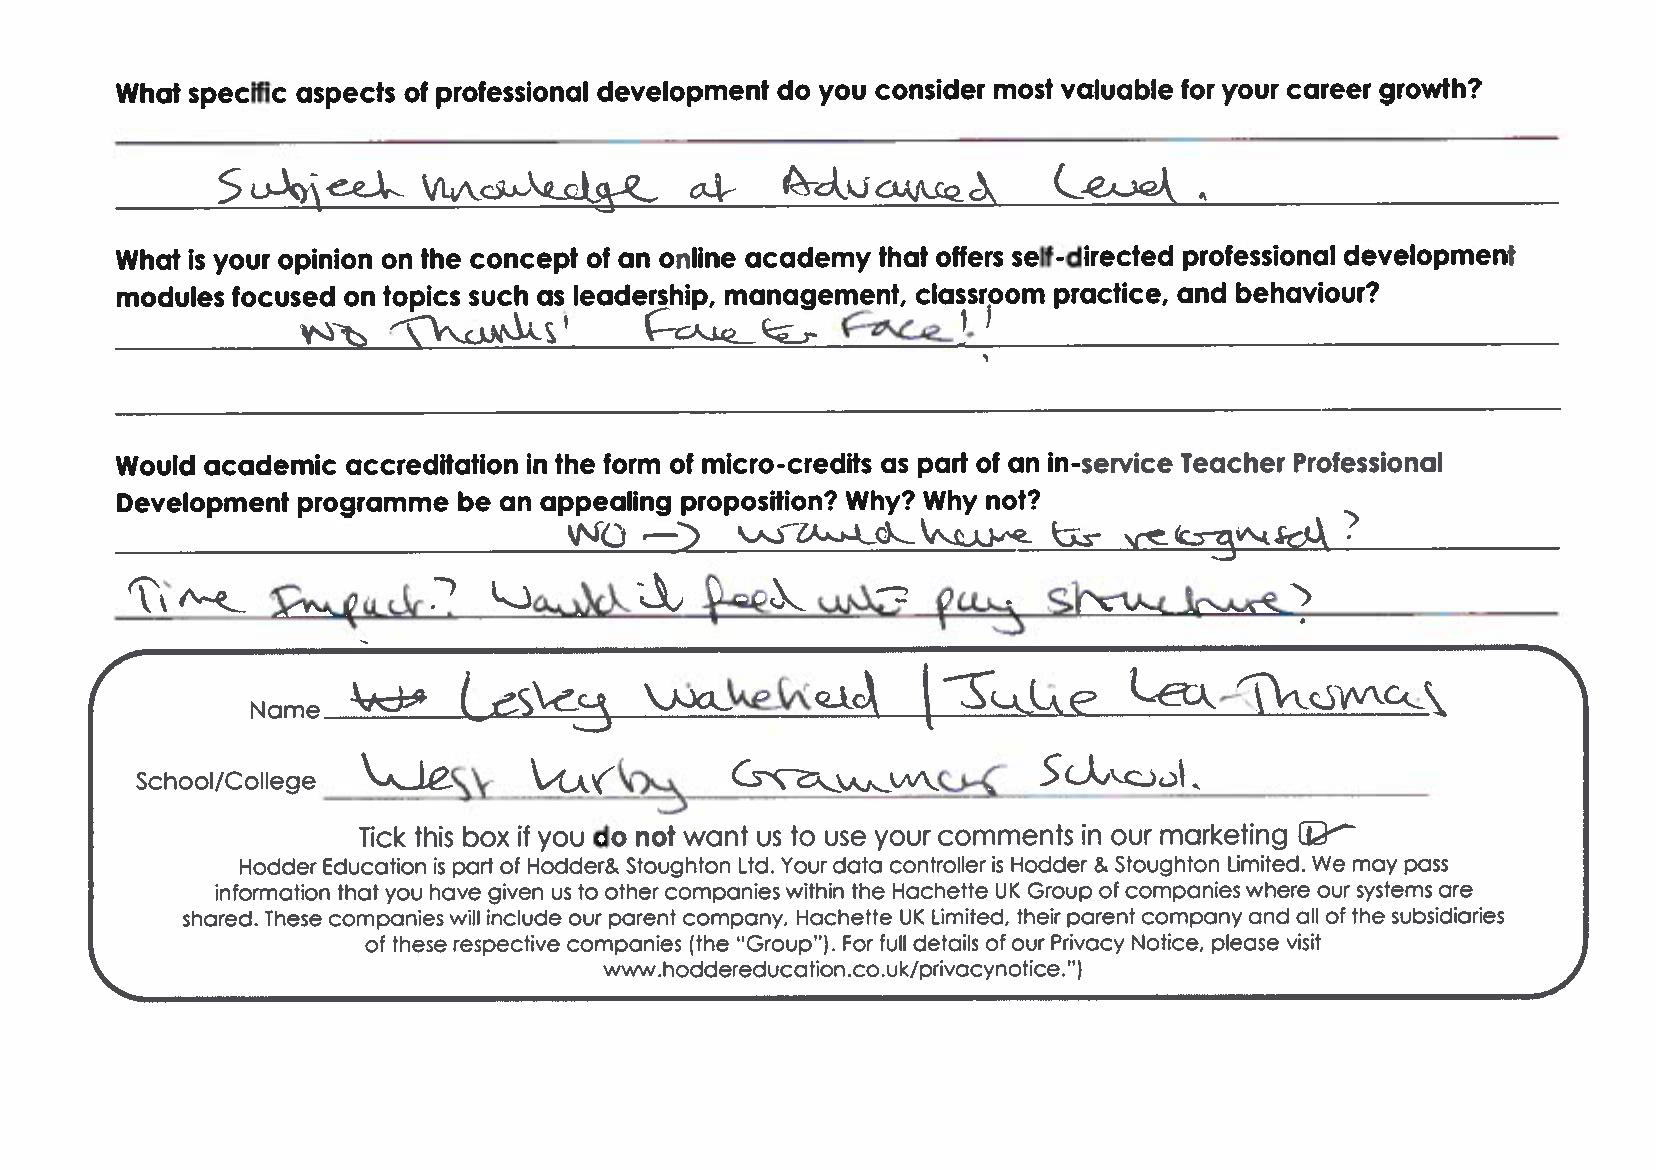 What specific aspects of professional development do you consider most valuable for your career growth?
Subject knowledge at Advanced Level.
What is your opinion on the concept of an online academy that offers self-directed professional development
modules focused on topics such as leadership, management, classroom practice, and behaviour?
No Thanks! Face to Face!!
Would academic accreditation in the form of micro-credits as part of an in-service Teacher Professional
Development programme be an appealing proposition? Why? Why not?
NO -> would have to recognised?
Time Impact? Would it feed into pay structure?
Name Lesley Wakefield / Julie Lea-Thomas
School/College West Kirby Grammar School.
Tick this box if you do not want us to use your comments in our marketing
Hodder Education is part of Hodder& Stoughton Ltd. Your data controller is Hodder & Stoughton Limited. We may pass
information that you have given us to other companies within the Hachette UK Group of companies where our systems are
shared. These companies will include our parent company, Hachette UK Limited, their parent company and all of the subsidiaries
of these respective companies (the "Group"). For full details of our Privacy Notice, please visit
www.hoddereducation.co.uk/privacynotice.")